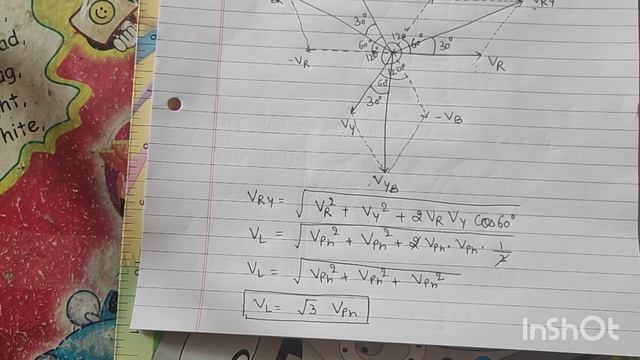 ad,
ug,
nt,
hite,
RY
30°
120°
60° 60° 30°
-V_R
V_R
60°
30°
V_Y
-V_B
V_YB
V_RY = √(V_R² + V_Y² + 2 V_R V_Y Cos 60°)
V_L = √(V_Ph² + V_Ph² + 2 V_Ph · V_Ph · 1/2)
V_L = √(V_Ph² + V_Ph² + V_Ph²)
V_L = √3 V_Ph
InShOt